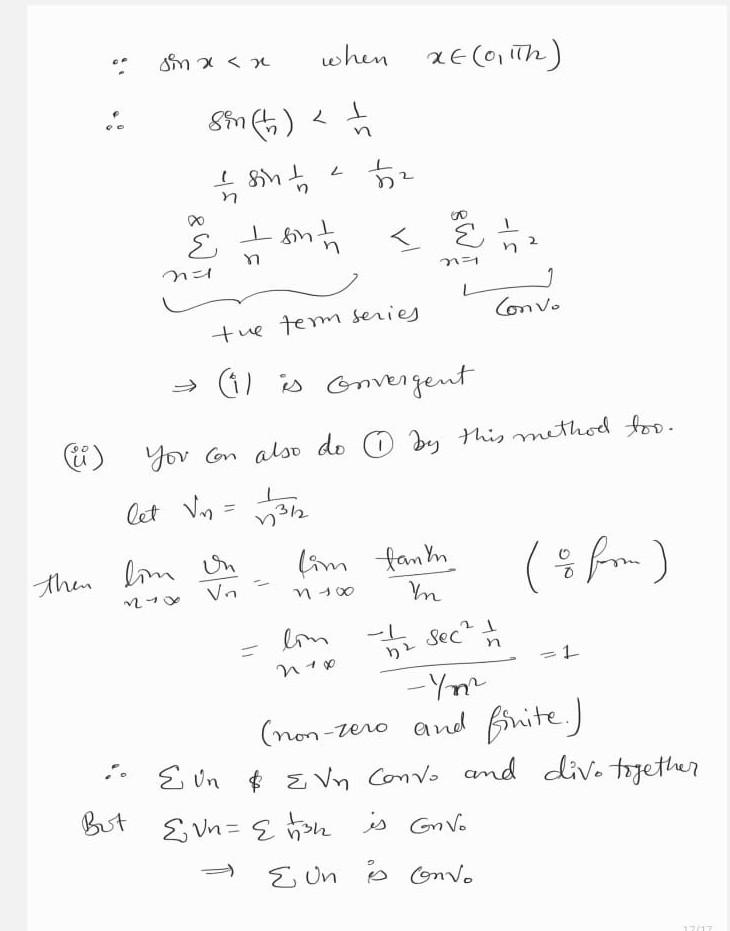 ∵ sin x < x when x ∈ (0, π/2)
∴ sin(1/n) < 1/n
1/n sin 1/n < 1/n²
∞ ∞
Σ 1/n sin 1/n ≤ Σ 1/n²
n=1 n=1
+ve term series Conv.
⇒ (i) is Convergent
(ii) You can also do ① by this method too.
let Vn = 1/n^3/2
then lim n→∞ Un/Vn = lim n→∞ tan 1/n / 1/n (0/0 form)
= lim n→∞ -1/n² sec² 1/n / -1/n² = 1
(non-zero and finite.)
∴ Σ Un & Σ Vn Conv. and div. together
But Σ Vn = Σ 1/n^3/2 is Conv.
⇒ Σ Un is Conv.
17/17